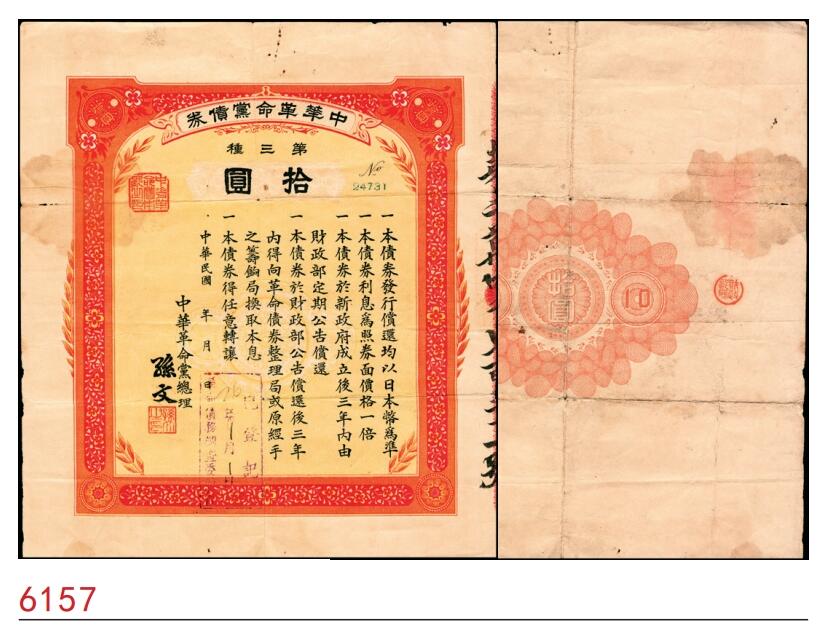 中華革命黨債券
第三種
拾圓
No
24731
一本債券發行償還均以日本幣爲準
一本債券利息爲照券面價格一倍
一本債券於新政府成立後三年內由
財政部定期公告償還
一本債券於財政部公告償還後三年
內得向革命債券整理局或原經手
之籌餉局換取本息
一本債券得任意轉讓
中華民國 年 月 日
中華革命黨總理
孫文
已登記
拾圓
6157